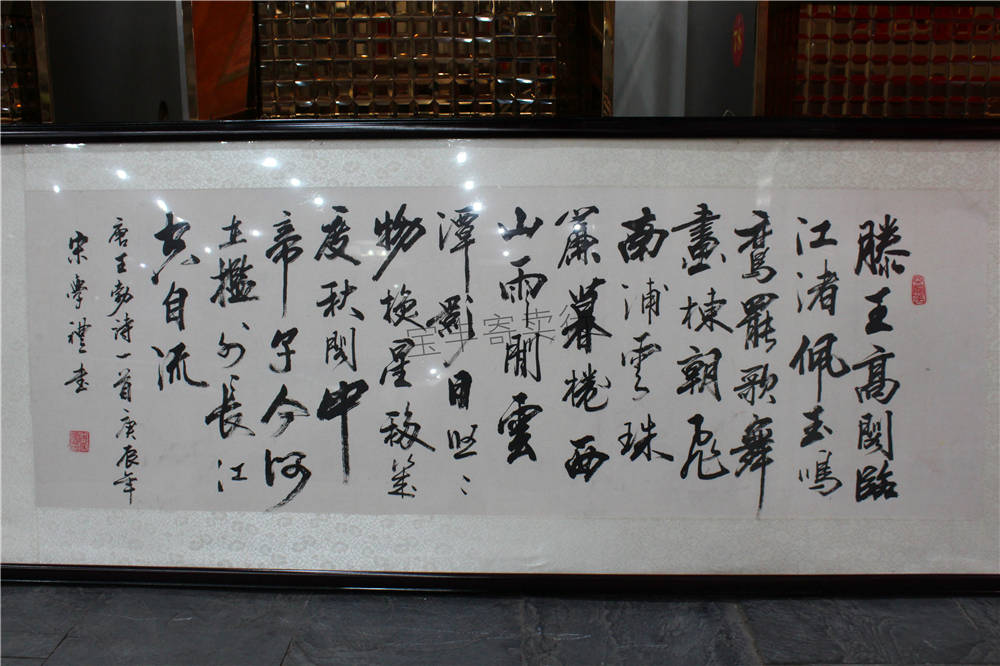 滕王高閣臨
江渚佩玉鳴
鸞罷歌舞
畫棟朝飛
南浦雲珠
簾暮捲西
山雨閒雲
潭影日悠々
物換星移幾
度秋閣中
帝子今何
在檻外長江
空自流
唐王勃詩一首庚辰年
宋學禮書
宝丰寄卖行